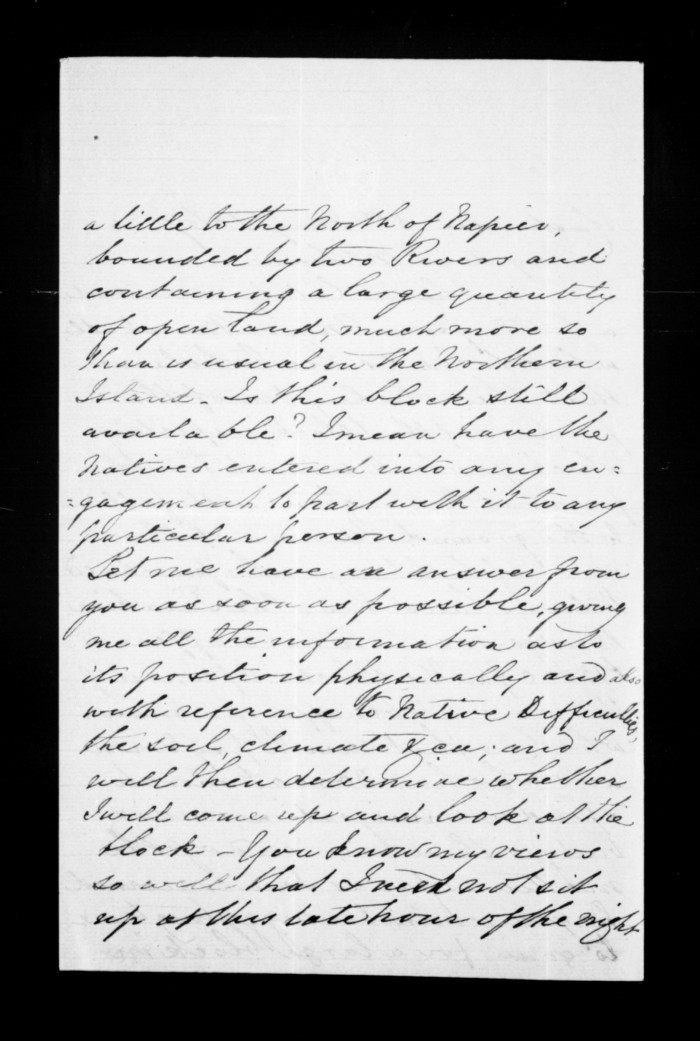 a little to the North of Napier,
bounded by two Rivers and
containing a large quantity
of open land, much more so
than is usual in the Northern
Island - Is this block still
available? I mean have the
Natives entered into any en=
=gagement to part with it to any
particular person.
Let me have an answer from
you as soon as possible, giving
me all the information as to
its position physically and also
with reference to Native Difficulties,
the soil, climate &ca; and I
will then determine whether
I will come up and look at the
block - You know my views
so well that I need not sit
up at this late hour of the night